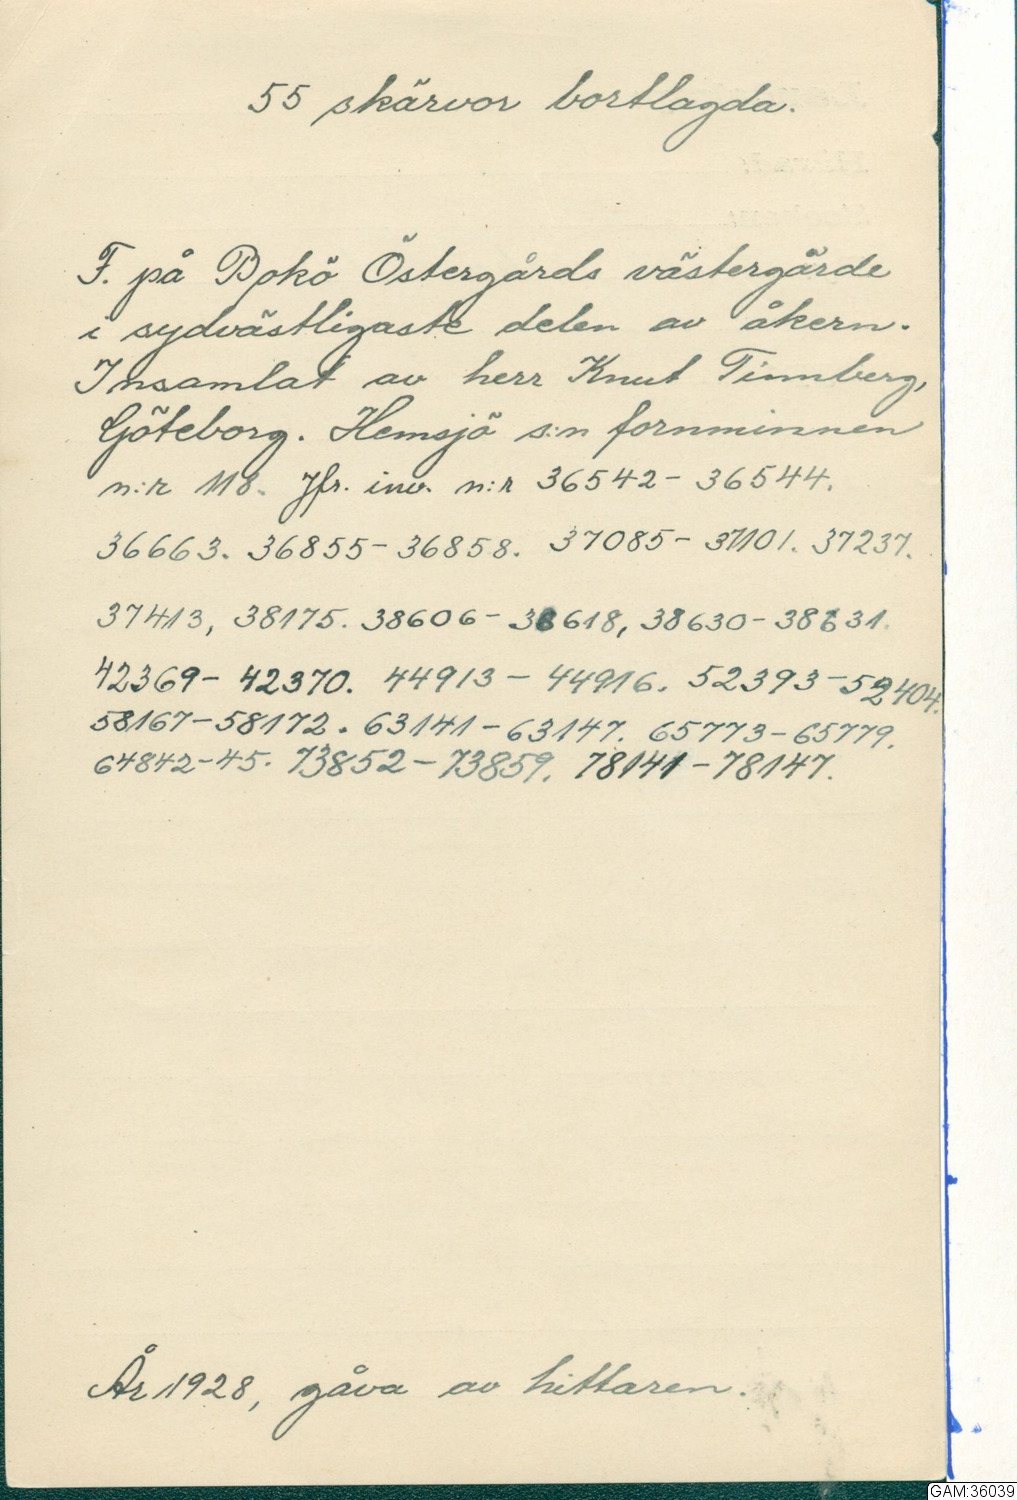 55 skärvor bortlagda.
F. på Bokö Östergårds västergärde
i sydvästligaste delen av åkern.
Insamlat av herr Knut Tinnberg,
Göteborg. Hemsjö s:n fornminnen
n:r 118. Jfr. inv. n:r 36542-36544.
36663. 36855-36858. 37085-37101. 37237.
37413, 38175. 38606-38618, 38630-38631.
42369-42370. 44913-44916. 52393-52404.
58167-58172. 63141-63147. 65773-65779.
64842-45. 73852-73859. 78141-78147.
År 1928, gåva av hittaren.
GAM:36039